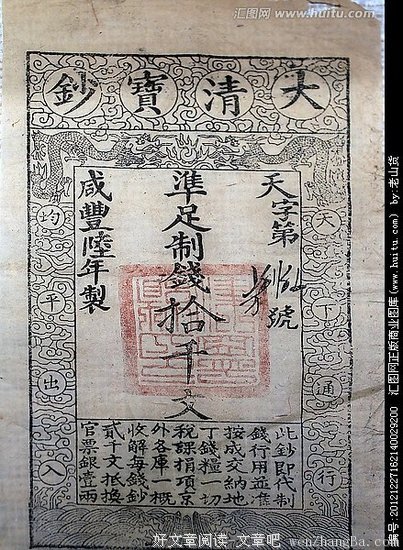 汇图网
www.huitu.com
大清寶鈔
天下通行
均平出入
天字第
號
準足制錢拾千文
咸豐陸年製
此鈔即代制
錢行用並準
按成交納地
丁錢糧一切
稅課捐項京
外各庫一概
收解每錢鈔
貳千文抵換
官票銀壹兩
汇图网正版商业图库(www.huitu.com) by:老山货
编号:20121227162140029200
好文章阅读-文章吧 wenZhangBa.com